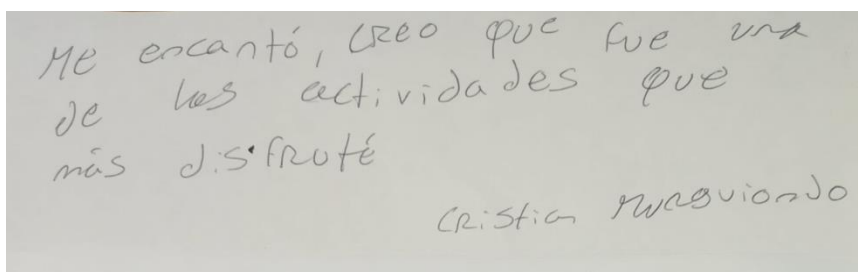 Me encantó, creo que fue una
de las actividades que
más disfruté
Cristian Murguiondo